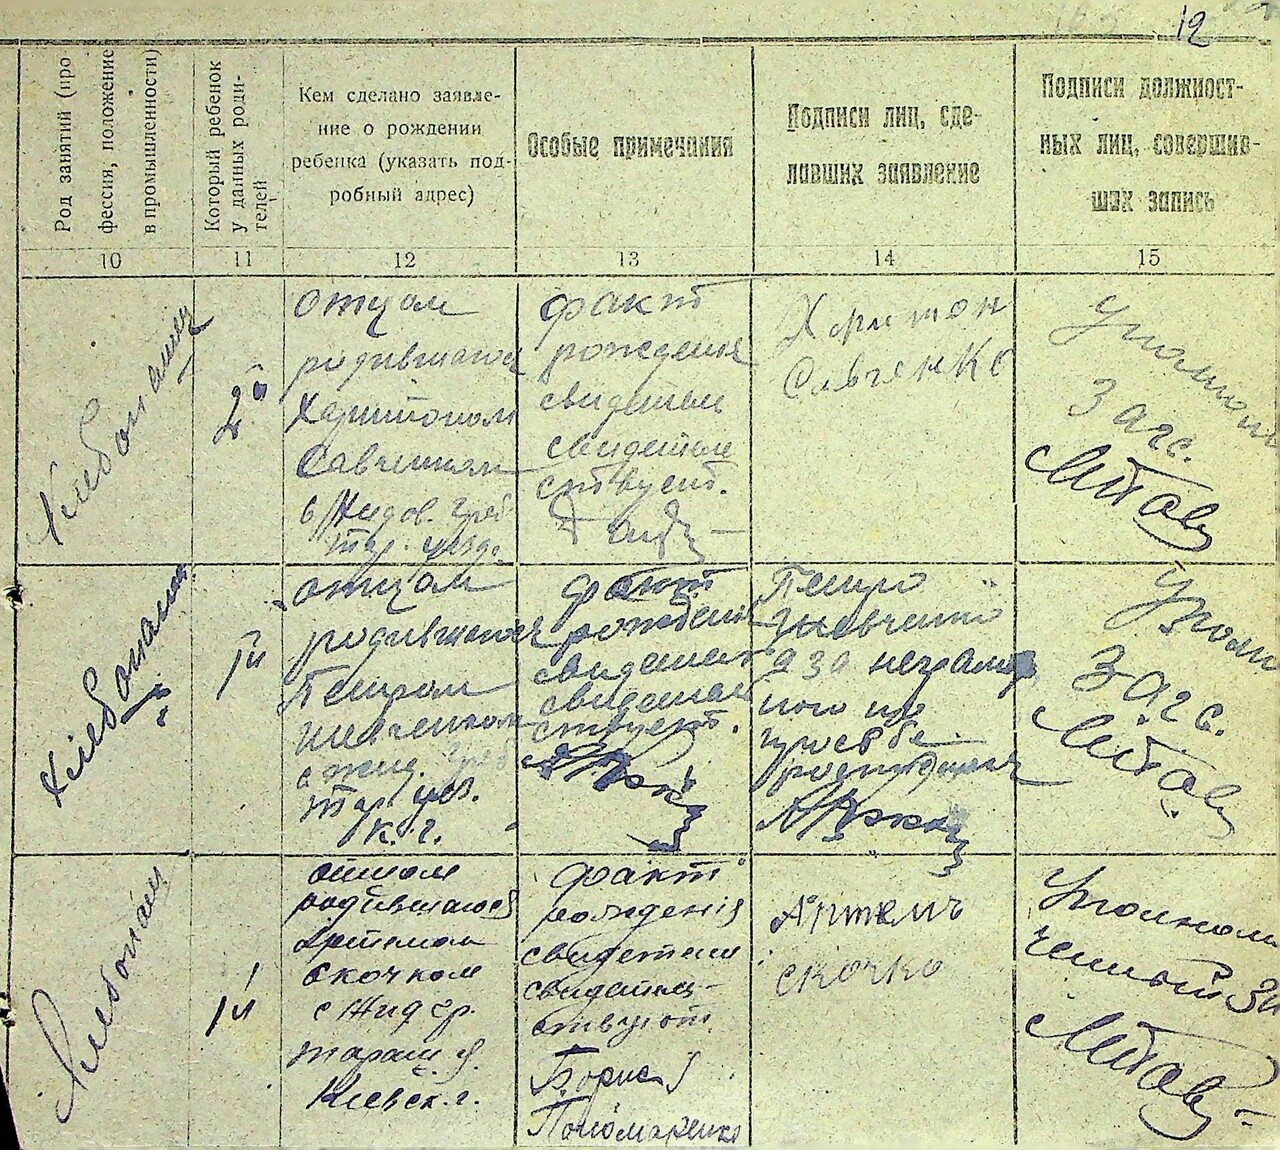 12
Род занятий (про
фессия, положение
в промышленности)
Который ребенок
у данных роди-
телей
Кем сделано заявле-
ние о рождении
ребенка (указать под-
робный адрес)
Особые примечания
Подписи лиц, сде-
лавших заявление
Подписи должност-
ных лиц, совершив-
ших запись
10
11
12
13
14
15
Хлебопашец
2й
отцом
родившагося
Харитоном
Савченком
отцом
факт
рождения
свидетели
свидетель
ствуют.
Харитон
Савченко
Загс.
Хлебопашец
1й
отцом
родившагося
Петром
факт
рождения
свидетели
свидетель
ствуют.
Петро
а за неграмот
ного по
просьбе
Загс.
Хлебопашец
1й
отцом
родившагося
Артемом
Скочком
с Жид гр.
таращ. у.
Киевск. г.
факт
рождения
свидетели
свидетель-
ствуют.
Борис
Пономаренко
Артемъ
скочко
Уполномо
ченный За